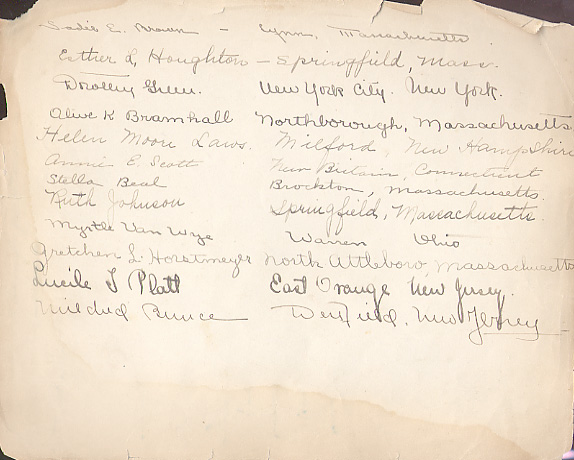 Sadie E. Brown - Lynn, Massachusetts
Esther L, Houghton - Springfield, Mass.
Dorothy Green. New York City. New York.
Alice K Bramhall Northborough, Massachusetts
Helen Moore Laws. Milford, New Hampshire
Annie E. Scott New Britain, Connecticut
Stella Beal Brockton, Massachusetts.
Ruth Johnson Springfield, Massachusetts.
Myrtle Van Wye Warren Ohio
Gretchen L Horstmeyer North Attleboro, Massachusetts
Lucile T Platt East Orange New Jersey.
Mildred New Jersey